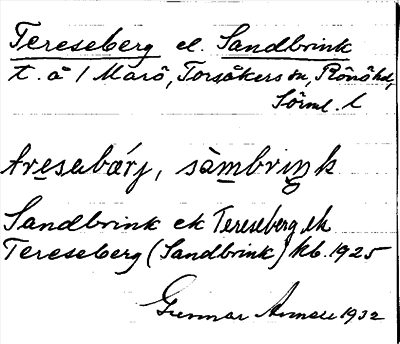 Tereseberg el. Sandbrink
t. å 1 Marö, Torsåkers sn, Rönö hd,
Sörml. l
tresəbærj, sàmbriŋk
Sandbrink ek Tereseberg ek
Tereseberg (Sandbrink) kb. 1925
Gunnar 1932